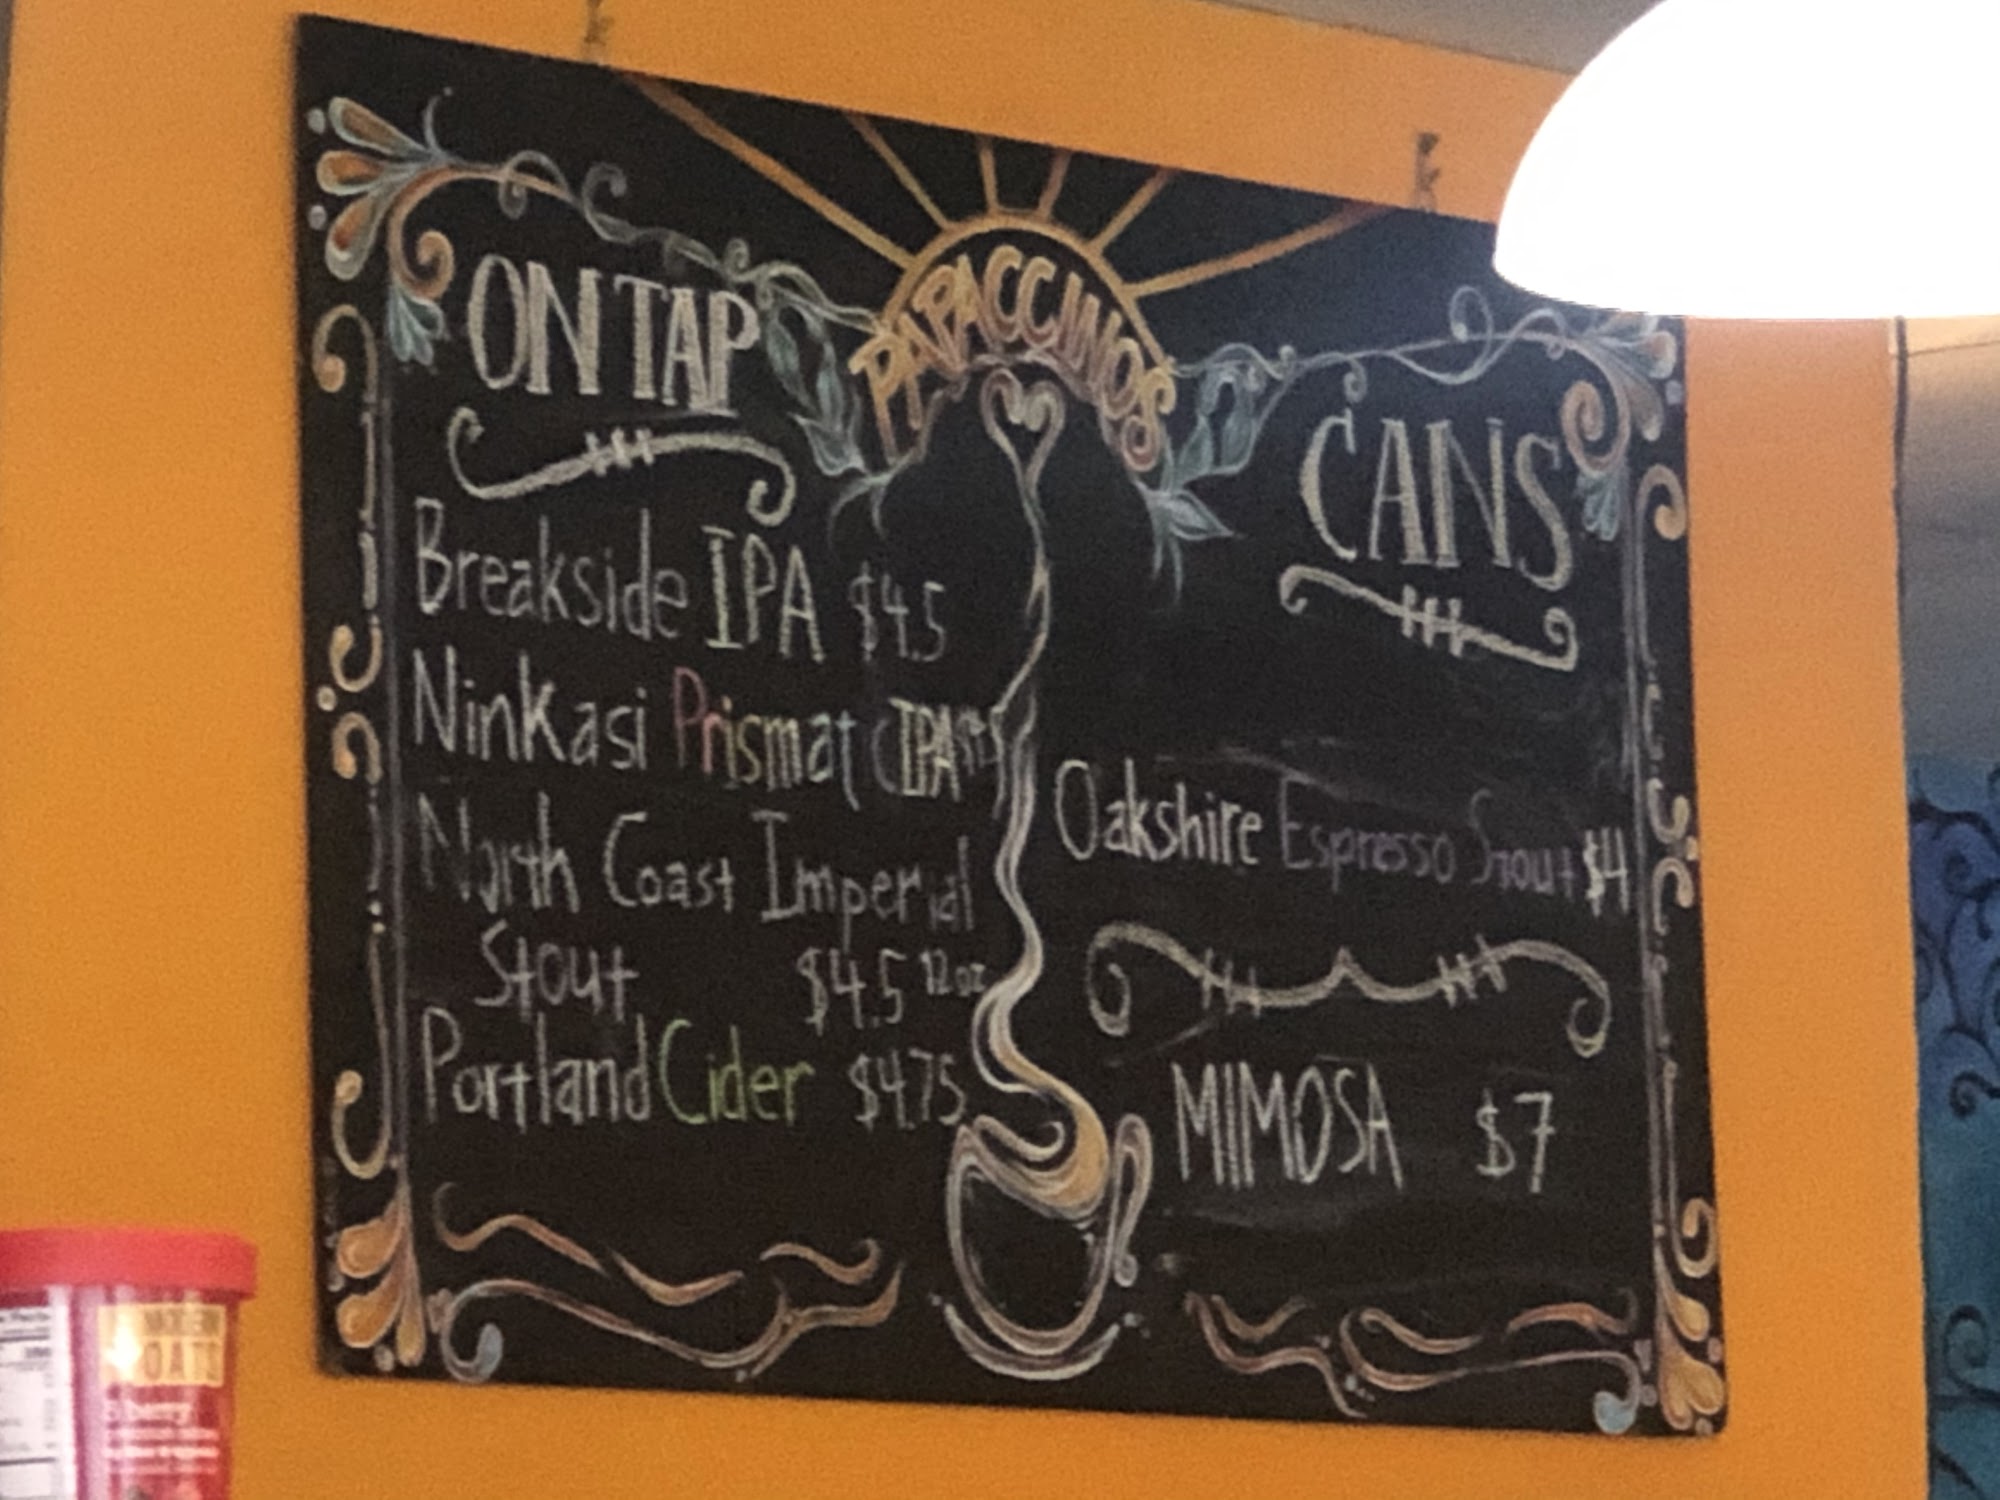 PAPACCINOS
ON TAP
Breakside IPA $4.5
Ninkasi Prismatic IPA
North Coast Imperial
Stout $4.5 12oz
Portland Cider $4.75
CANS
Oakshire Espresso Stout $4
MIMOSA $7
OATS
berry